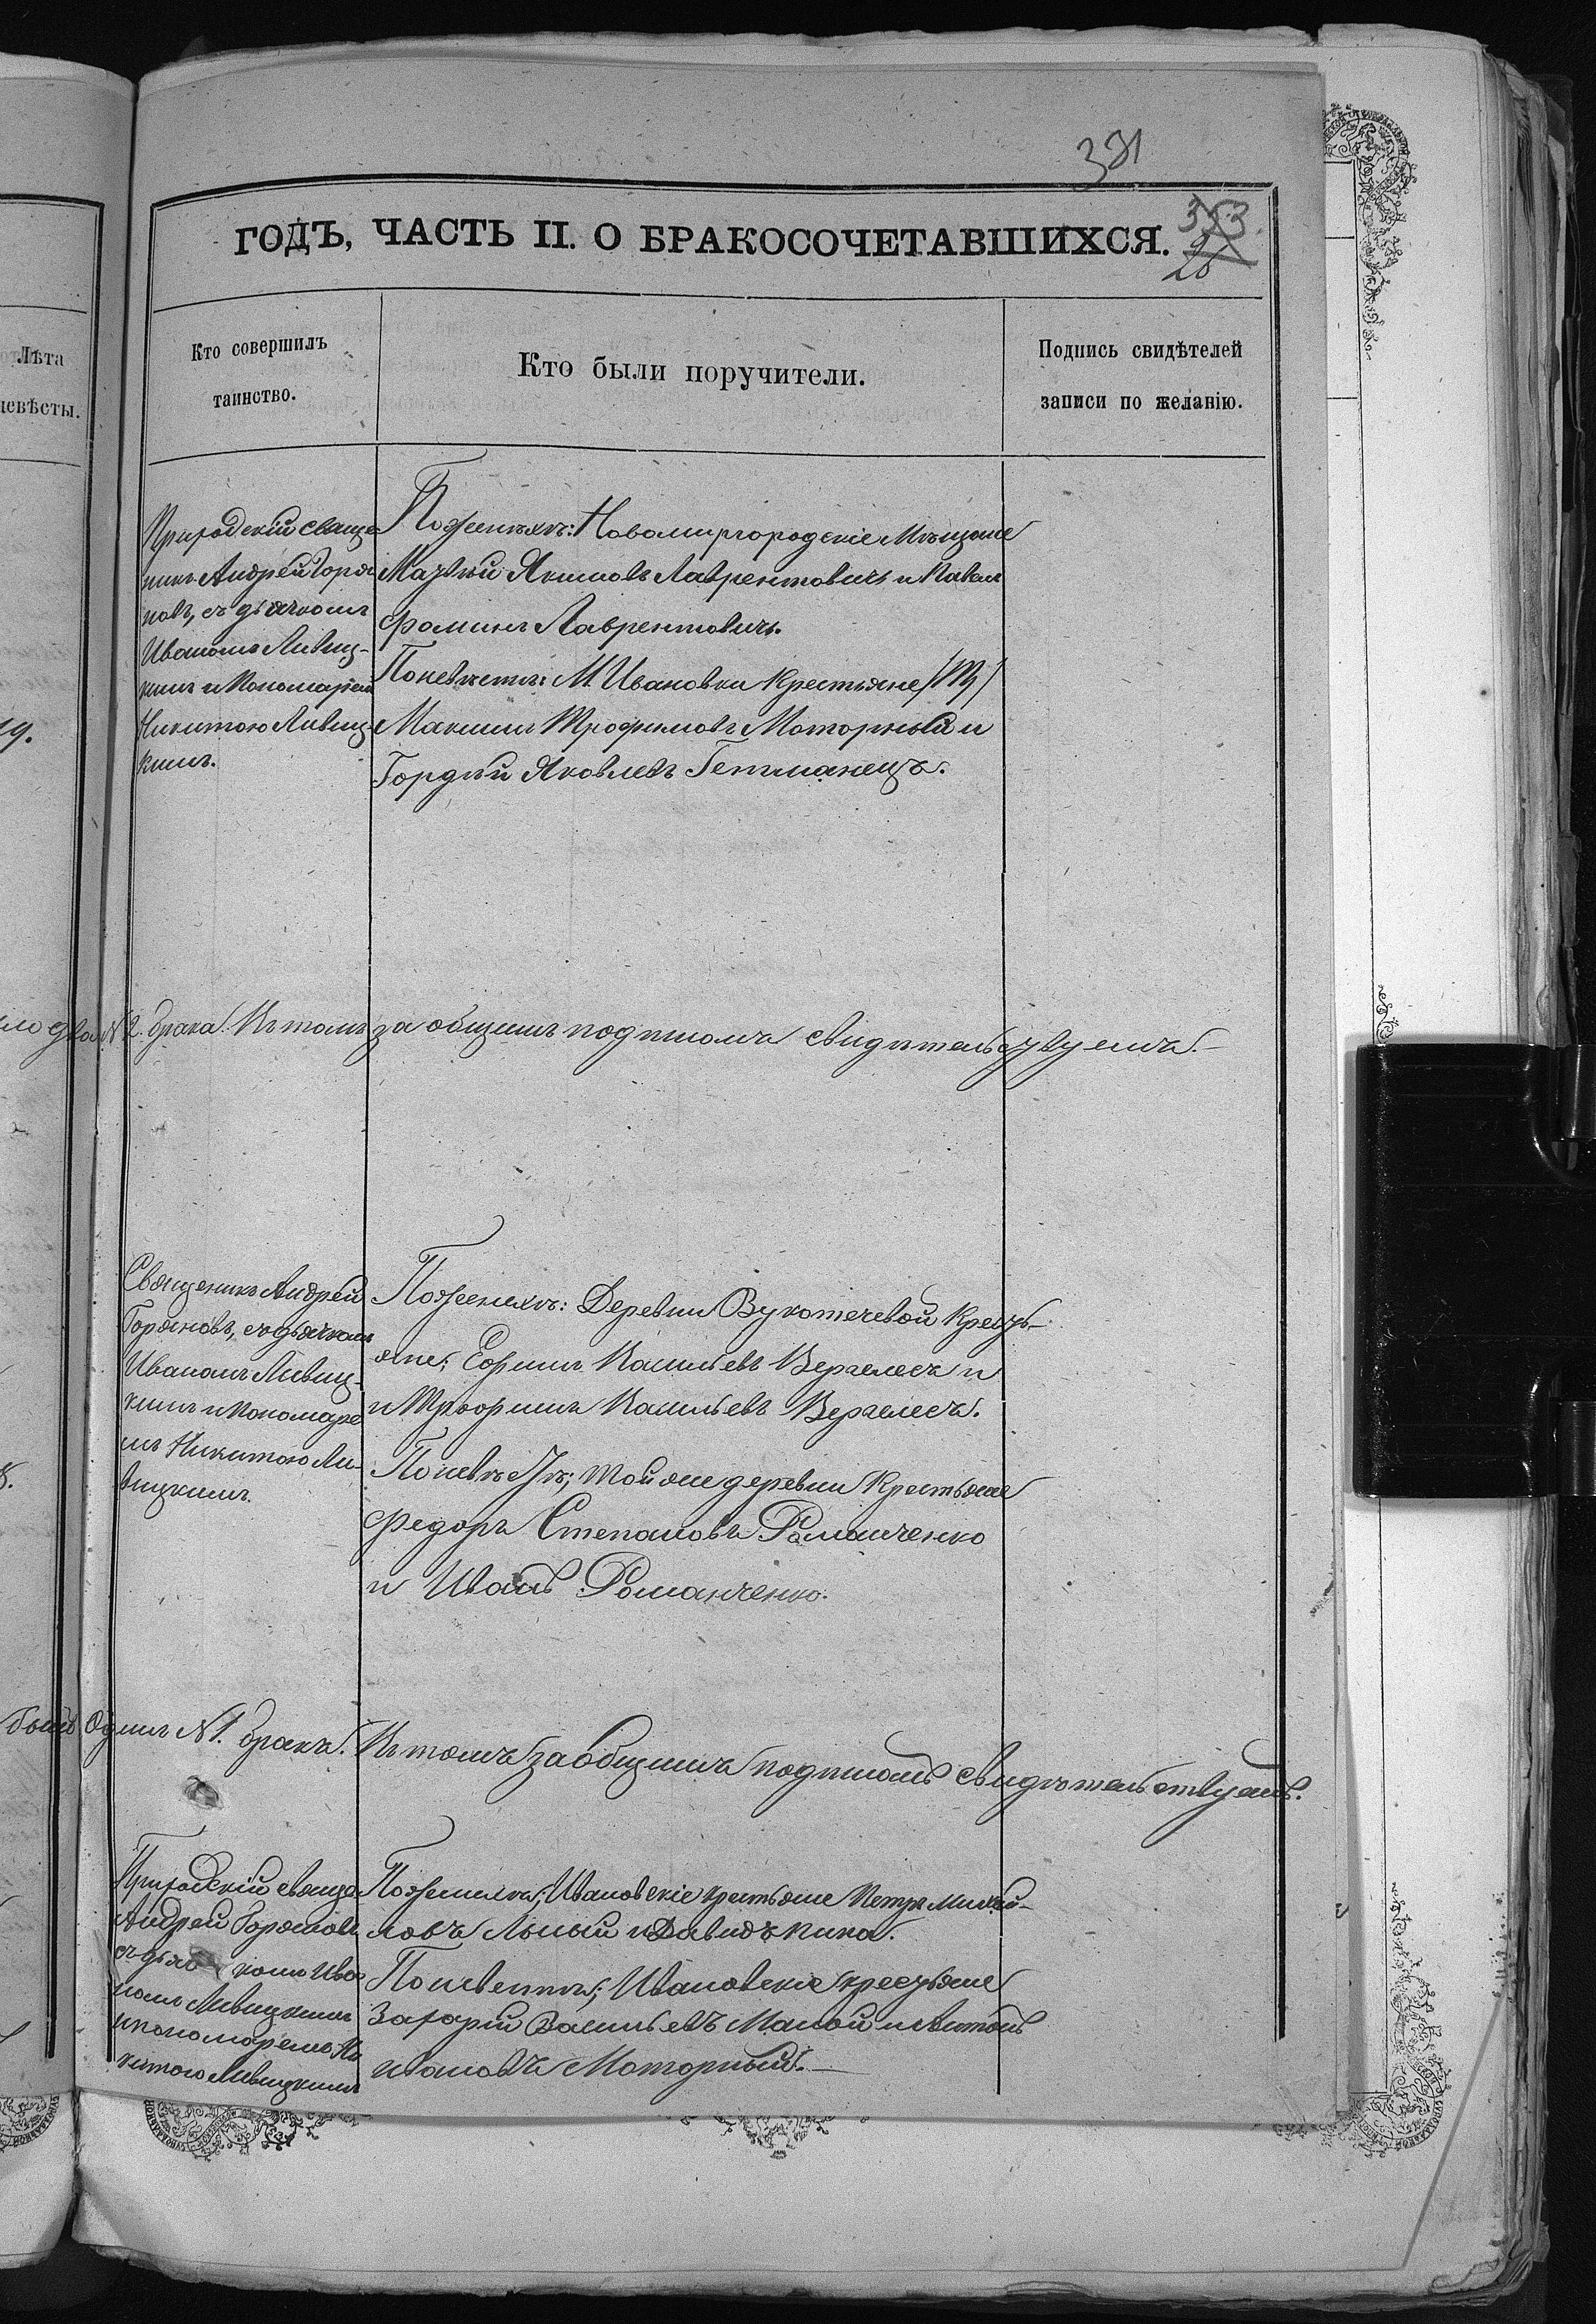 381
353
26
ГОДЪ, ЧАСТЬ II. О БРАКОСОЧЕТАВШИХСЯ.
Лѣта
невѣсты.
Кто совершилъ
таинство.
Кто были поручители.
Подпись свидѣтелей
записи по желанію.
19.
Приходскій свяще
никъ Андрей Горя
новъ, съ дьячкомъ
Иваномъ Ливиц-
кимъ и Пономаремъ
Никитою Ливиц-
кимъ.
По женихѣ: Новомиргородскіе Мѣщане
Якимовъ Лаврентовичъ и Павел
Фоминъ Лаврентовичъ.
По невѣстѣ: М. Ивановки Крестьяне
Максимъ Трофимовъ Моторный и
Гордѣй Яковлевъ Гетманецъ.
два № 2. брака. Въ томъ за общимъ подписомъ свидѣтельствуемъ.
Священикъ Андрей
Горяновъ, съ дьячкомъ
Иваномъ Ливиц-
кимъ и Пономаре
мъ Никитою Ли-
вицкимъ.
По женихѣ: Деревни Вукотичевой Кресть-
яне; Ефимъ Васильевъ Вергелесъ и
и Трофимъ Васильевъ Вергелесъ.
По невѣстѣ; той же деревни Крестьяне
Федоръ Степановъ Романченко
и Иванъ Романченко.
былъ Одинъ № 1. бракъ. Въ томъ за общимъ подписомъ свидѣтельствуемъ.
Приходскій свяще
Андрей Горяновъ
съ дья комъ Ива
номъ Ливицкимъ
и пономаремъ Ни
китою Ливицкимъ
По женихѣ; Ивановскіе крестьяне Петръ Михай-
ловъ Лысый и Давидъ Кика.
По невѣстѣ; Ивановскіе крестьяне
Захарій Васильевъ Малой и Антонъ
Ивановъ Моторный.